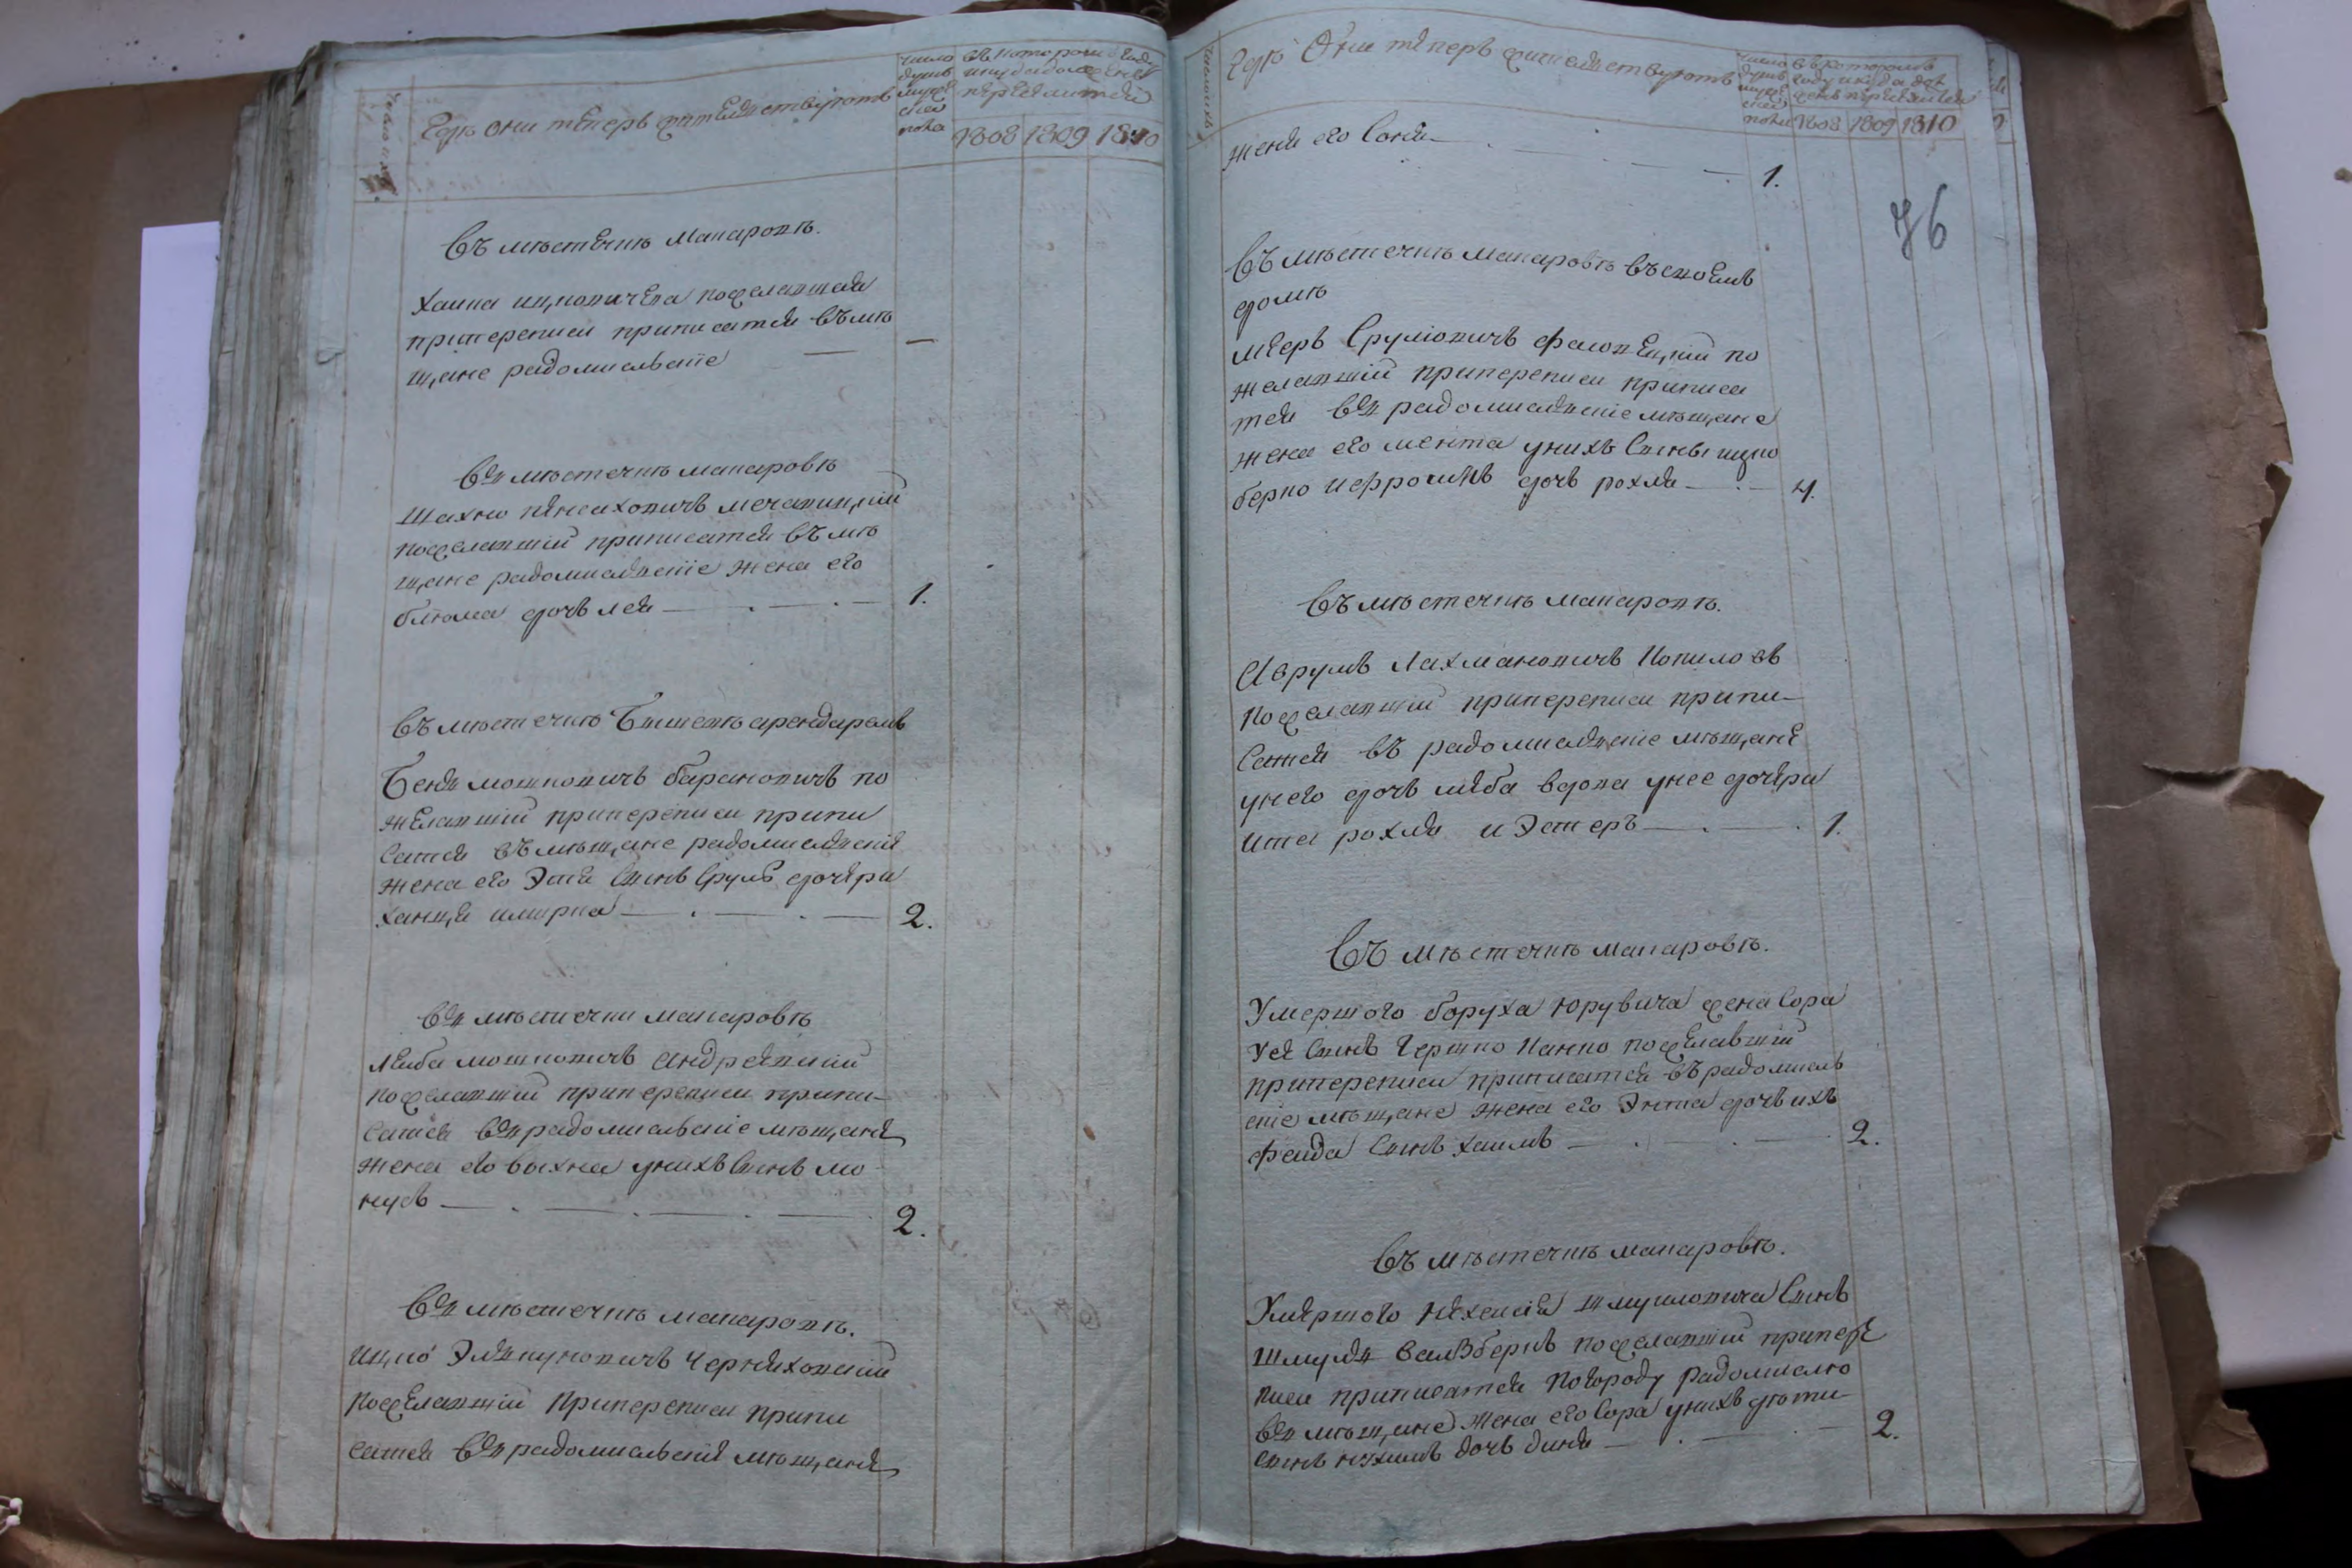 Где они теперь жительствуютъ
число душъ мужескаго пола
въ котором году и куда должны переселитса
1808 1809 1810
Въ мѣстечкѣ Макаровѣ.
Хаина ицковичева пожелавшая
припереписи приписатся въ мѣ
щане радомисльские —
Въ мѣстечкѣ макаровѣ
Шахно пенсаховичъ мечавицкий
пожелавший приписатся въ мѣ
щане радомисльские жена его
блюма дочъ лея — 1.
Въ мѣстечкѣ Бишевѣ арендаремъ
Беня мошковичъ барановичъ по
желавший припереписи припи
сатся въ мѣщане радомисльские
жена его Эстя Синъ Сруль дочери
Ханця имирка — 2.
въ мѣстечки макаровѣ
Леиба мошковичъ андреявский
пожелавший припереписи припи-
сатся въ радомисльские мѣщане
жена его выхна унихъ Синъ мо-
нусъ — 2.
въ мѣстечкѣ макаровѣ.
ицко Элькуновичъ Черняховский
пожелавший Припереписи припи
сатся въ радомисльские мѣщане
Где Они теперь жительствуютъ
число душъ мужескаго пола
въ которомъ году и куда должень переселитса
1808 1809 1810
76
жена его Соня — 1.
Въ мѣстечкѣ макаровѣ въ своемъ
домѣ
меерь Сруліовичъ фасовецкий по
желавший припереписи приписа
тся въ радомисльские мѣщане
жена его мента унихъ Сины ицко
берко и ефроимъ дочъ рохля — 4.
Въ мѣстечкѣ макаровѣ.
Аврумъ Лахмановичъ Копиловъ
пожелавший припереписи припи-
сатся въ радомисльские мѣщане
унего дочъ леба вдова унее дочери
ита рохля и Эстеръ — 1.
Въ мѣстечкѣ макаровѣ.
Умершого боруха юрувича жена Сора
Уея Синъ Гершко Канко пожелавший
припереписи приписатся въ радомисль
ские мѣщане жена его Энта дочъ ихъ
фаида Синъ хаимъ — 2.
Въ мѣстечкѣ макаровѣ.
Умершого Нехемія шмуиловича Синъ
Шмуль Валзбернъ пожелавший припере
писи приписатся погороду радомислю
въ мѣщане жена его Сора унихъ дѣти-
Синъ нухимъ дочъ диня — 2.